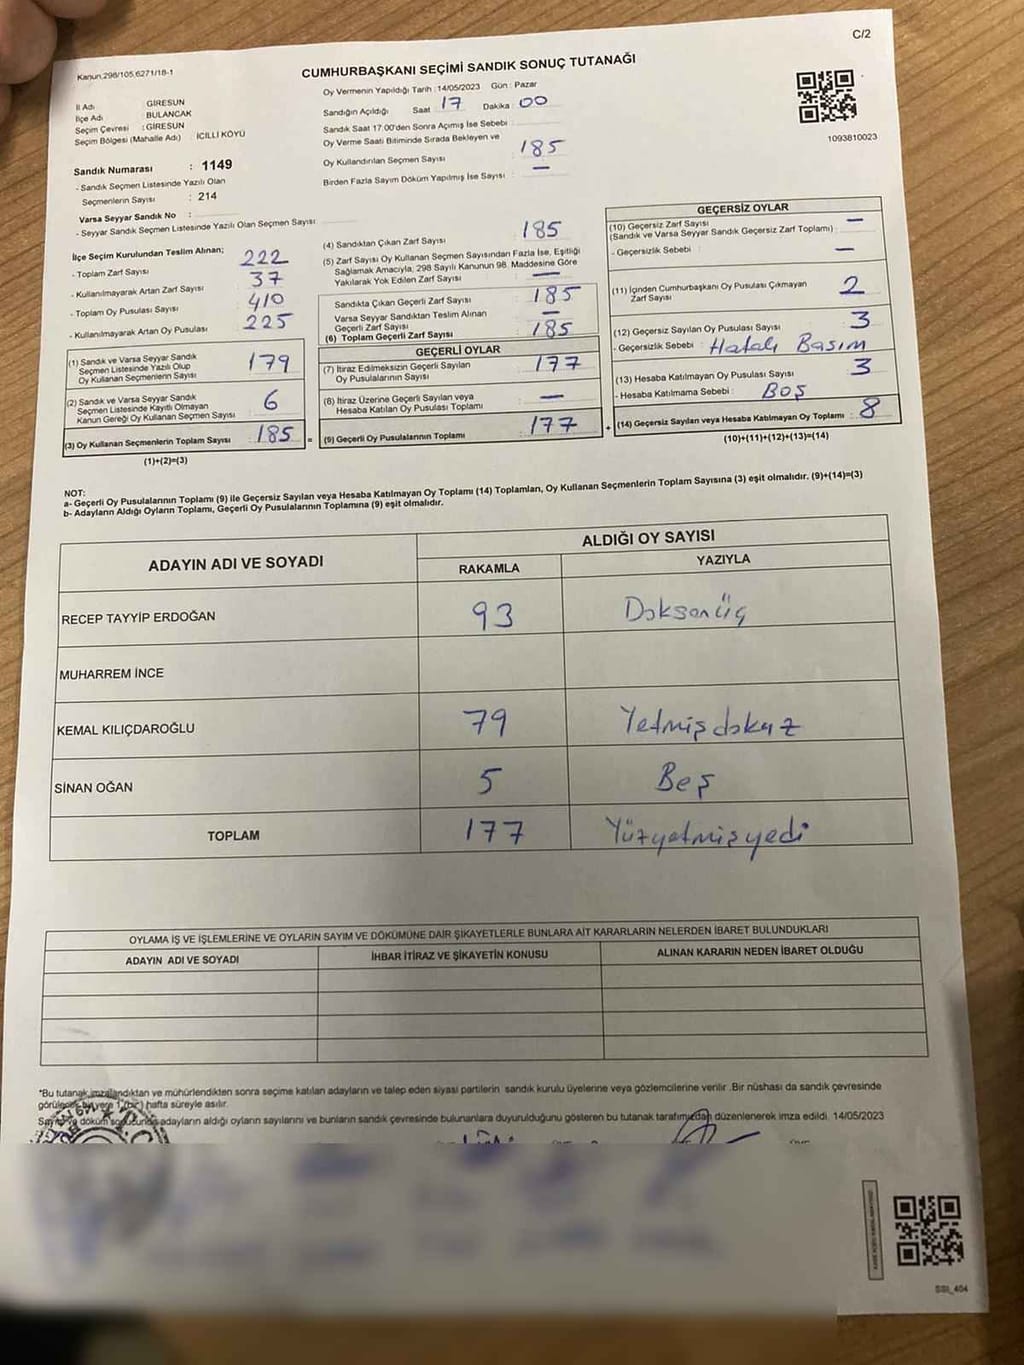 C/2
Kanun.298/105,6271/18-1
CUMHURBAŞKANI SEÇİMİ SANDIK SONUÇ TUTANAĞI
İl Adı GİRESUN
İlçe Adı BULANCAK
Seçim Çevresi : GİRESUN
Seçim Bölgesi (Mahalle Adı) İCİLLİ KÖYÜ
Sandık Numarası : 1149
- Sandık Seçmen Listesinde Yazılı Olan
Seçmenlerin Sayısı : 214
Varsa Seyyar Sandık No :
- Seyyar Sandık Seçmen Listesinde Yazılı Olan Seçmen Sayısı:
Oy Vermenin Yapıldığı Tarih : 14/05/2023 Gün : Pazar
Sandığın Açıldığı Saat 17 Dakika : 00
Sandık Saat 17:00'den Sonra Açmış İse Sebebi :
Oy Verme Saati Bitiminde Sırada Bekleyen ve
Oy Kullandırılan Seçmen Sayısı : 185
Birden Fazla Sayım Döküm Yapılmış İse Sayısı : —
1093810023
İlçe Seçim Kurulundan Teslim Alınan;
- Toplam Zarf Sayısı 222
- Kullanılmayarak Artan Zarf Sayısı 37
- Toplam Oy Pusulası Sayısı 410
- Kullanılmayarak Artan Oy Pusulası 225
(1) Sandık ve Varsa Seyyar Sandık
Seçmen Listesinde Yazılı Olup
Oy Kullanan Seçmenlerin Sayısı 179
(2) Sandık ve Varsa Seyyar Sandık
Seçmen Listesinde Kayıtlı Olmayan
Kanun Gereği Oy Kullanan Seçmen Sayısı : 6
(3) Oy Kullanan Seçmenlerin Toplam Sayısı : 185 =
(1)+(2)=(3)
(4) Sandıktan Çıkan Zarf Sayısı : 185
(5) Zarf Sayısı Oy Kullanan Seçmen Sayısından Fazla İse, Eşitliği
Sağlamak Amacıyla; 298 Sayılı Kanunun 98. Maddesine Göre
Yakılarak Yok Edilen Zarf Sayısı : —
Sandıkta Çıkan Geçerli Zarf Sayısı : 185
Varsa Seyyar Sandıktan Teslim Alınan
Geçerli Zarf Sayısı : —
(6) Toplam Geçerli Zarf Sayısı : 185
GEÇERLİ OYLAR
(7) İtiraz Edilmeksizin Geçerli Sayılan
Oy Pusulalarının Sayısı : 177
(8) İtiraz Üzerine Geçerli Sayılan veya
Hesaba Katılan Oy Pusulası Toplamı : —
(9) Geçerli Oy Pusulalarının Toplamı : 177 +
GEÇERSİZ OYLAR
(10) Geçersiz Zarf Sayısı
(Sandık ve Varsa Seyyar Sandık Geçersiz Zarf Toplamı) : —
- Geçersizlik Sebebi : —
(11) İçinden Cumhurbaşkanı Oy Pusulası Çıkmayan
Zarf Sayısı : 2
(12) Geçersiz Sayılan Oy Pusulası Sayısı : 3
- Geçersizlik Sebebi : Hatalı Basım
(13) Hesaba Katılmayan Oy Pusulası Sayısı : 3
- Hesaba Katılmama Sebebi : BOŞ
(14) Geçersiz Sayılan veya Hesaba Katılmayan Oy Toplamı : 8
(10)+(11)+(12)+(13)=(14)
NOT:
a- Geçerli Oy Pusulalarının Toplamı (9) ile Geçersiz Sayılan veya Hesaba Katılmayan Oy Toplamı (14) Toplamları, Oy Kullanan Seçmenlerin Toplam Sayısına (3) eşit olmalıdır. (9)+(14)=(3)
b- Adayların Aldığı Oyların Toplamı, Geçerli Oy Pusulalarının Toplamına (9) eşit olmalıdır.
ADAYIN ADI VE SOYADI
ALDIĞI OY SAYISI
RAKAMLA YAZIYLA
RECEP TAYYİP ERDOĞAN 93 Doksanüç
MUHARREM İNCE
KEMAL KILIÇDAROĞLU 79 Yetmişdokuz
SİNAN OĞAN 5 Beş
TOPLAM 177 Yüzyetmişyedi
OYLAMA İŞ VE İŞLEMLERİNE VE OYLARIN SAYIM VE DÖKÜMÜNE DAİR ŞİKAYETLERLE BUNLARA AİT KARARLARIN NELERDEN İBARET BULUNDUKLARI
ADAYIN ADI VE SOYADI İHBAR İTİRAZ VE ŞİKAYETİN KONUSU ALINAN KARARIN NEDEN İBARET OLDUĞU
*Bu tutanak imzalandıktan ve mühürlendikten sonra seçime katılan adayların ve talep eden siyasi partilerin sandık kurulu üyelerine veya gözlemcilerine verilir .Bir nüshası da sandık çevresinde
görülecek bir yere 1 (bir) hafta süreyle asılır.
Sayım ve döküm sonucunda adayların aldığı oyların sayılarını ve bunların sandık çevresinde bulunanlara duyurulduğunu gösteren bu tutanak tarafımızdan düzenlenerek imza edildi. 14/05/2023
SSI_404